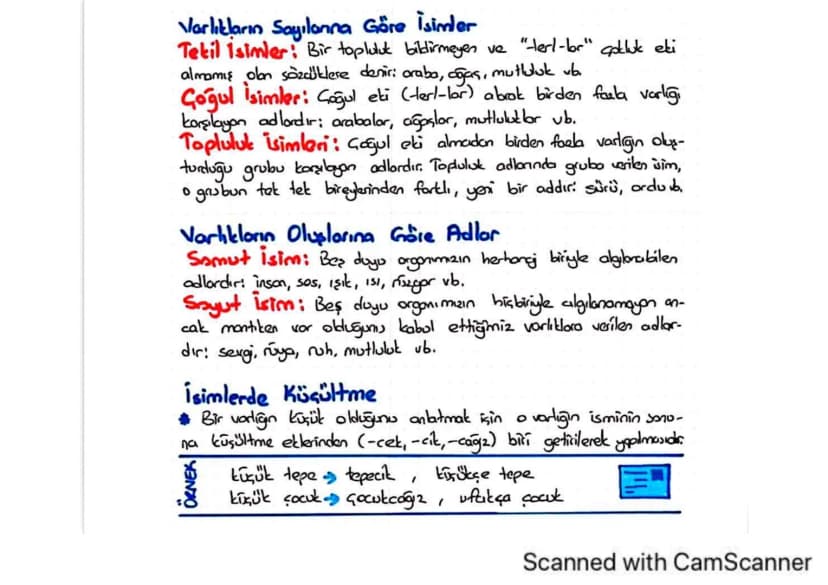 Varlıkların Sayılarına Göre İsimler
Tekil İsimler: Bir topluluk bildirmeyen ve "-ler/-lar" çokluk eki
almamış olan sözcüklere denir: araba, ağaç, mutluluk vb.
Çoğul İsimler: Çoğul eki (-ler/-lar) alarak birden fazla varlığı
karşılayan adlardır: arabalar, ağaçlar, mutluluklar vb.
Topluluk İsimleri: Çoğul eki almadan birden fazla varlığın oluş-
turduğu grubu karşılayan adlardır. Topluluk adlarında gruba verilen isim,
o grubun tek tek bireylerinden farklı, yeni bir addır: sürü, ordu vb.
Varlıkların Oluşlarına Göre Adlar
Somut İsim: Beş duyu organımızın herhangi biriyle algılanabilen
adlardır: insan, ses, ışık, ısı, rüzgar vb.
Soyut İsim: Beş duyu organımızın hiçbiriyle algılanamayan an-
cak mantıken var olduğunu kabul ettiğimiz varlıklara verilen adlar-
dır: sevgi, rüya, ruh, mutluluk vb.
İsimlerde Küçültme
Bir varlığın küçük olduğunu anlatmak için o varlığın isminin sonu-
na küçültme eklerinden (-cek, -cik, -cağız) biri getirilerek yapılmasıdır.
ÖRNEK
küçük tepe → tepecik , küçükçe tepe
küçük çocuk → çocukcağız , ufakça çocuk
Scanned with CamScanner